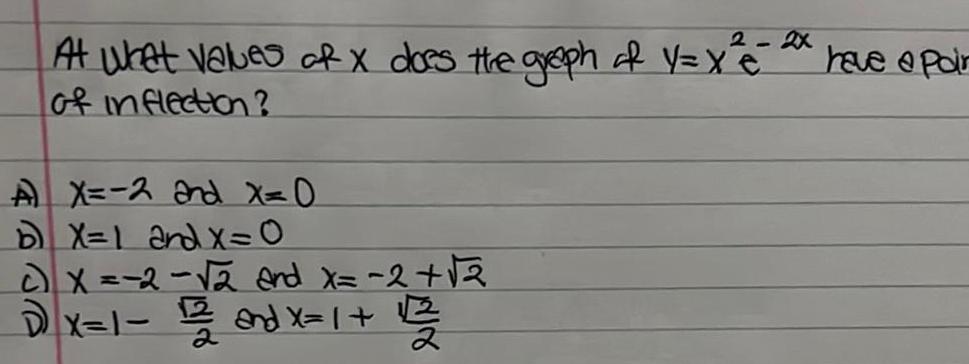 At what values of x does the graph of y = x²e⁻²ˣ have a poin
of inflection?
A) x = -2 and x = 0
b) x = 1 and x = 0
c) x = -2 - √2 and x = -2 + √2
D) x = 1 - √2/2 and x = 1 + √2/2